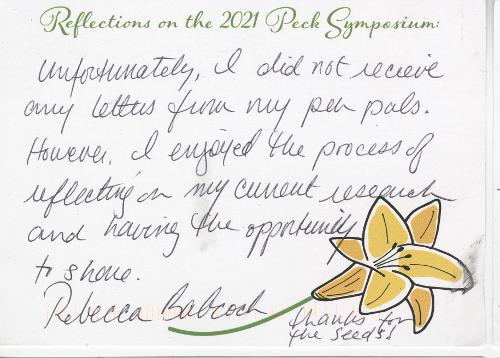 Reflections on the 2021 Peck Symposium:
Unfortunately, I did not recieve
any letters from my pen pals.
However, I enjoyed the process of
reflecting on my current research
and having the opportunity
to share.
Rebecca Babcock
thanks for
the seeds!